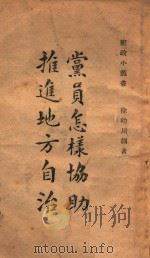 憲政小叢書
徐幼川編著
黨員怎樣協助
推進地方自治